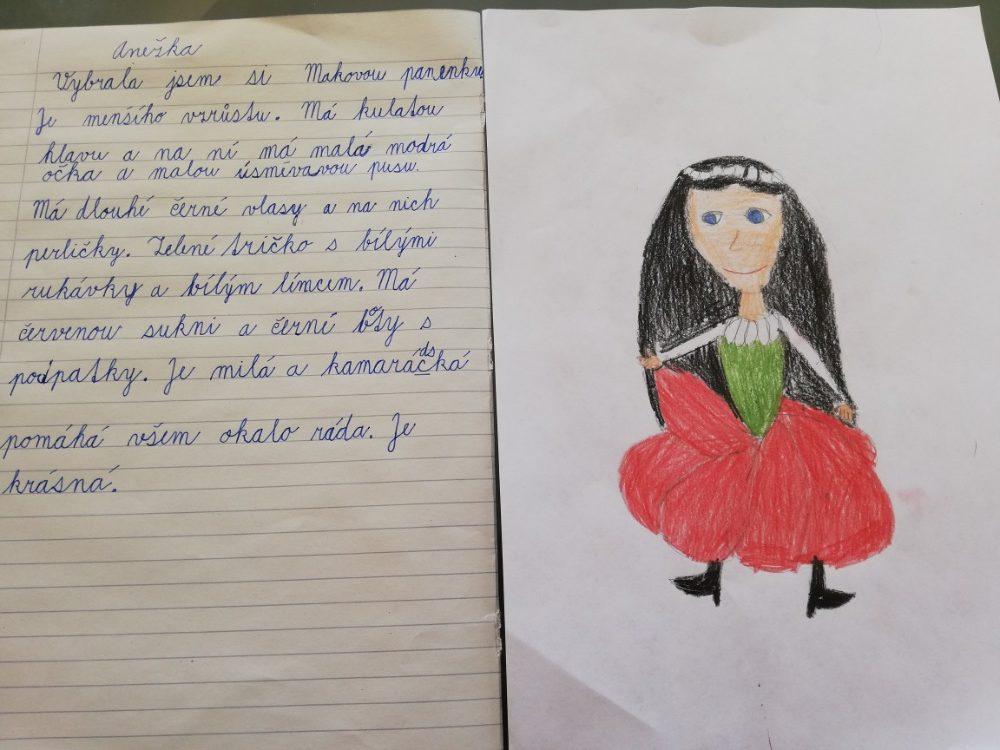 Anežka
Vybrala jsem si Makovou panenku
Je menšího vzrůstu. Má kulatou
hlavu a na ní má malá modrá
očka a malou úsmívavou pusu.
Má dlouhé černé vlasy a na nich
perličky. Zelené tričko s bílými
rukávky a bílým límcem. Má
červenou sukni a černé boty s
podpatky. Je milá a kamarádská
pomáhá všem okalo ráda. Je
krásná.